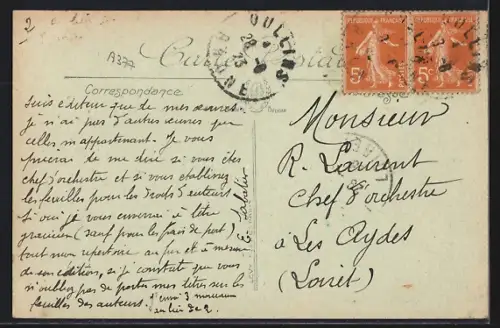 2
A377
OULLINS
RHONE
Carte Postale
RÉPUBLIQUE FRANÇAISE
RÉPUBLIQUE FRANÇAISE
5c
5c
Correspondance
suis éditeur que de mes œuvres
je n'ai pas d'autres œuvres que
celles m'appartenant. Je vous
prierai de me dire si vous êtes
chef d'orchestre et si vous établissez
les feuilles pour les droits d'auteurs
Si oui je vous enverrai à titre
gracieux (sauf pour les frais de port)
tout mon repertoire au fur et à mesure
de son edition, si je constate que vous
n'oubliez pas de porter mes titres sur les
feuilles des auteurs.
j'envoi 3 morceaux
au lieu de 2.
Sabatier
Monsieur
R. Laurent
Chef d'orchestre
à Les Aydes
(Loiret)